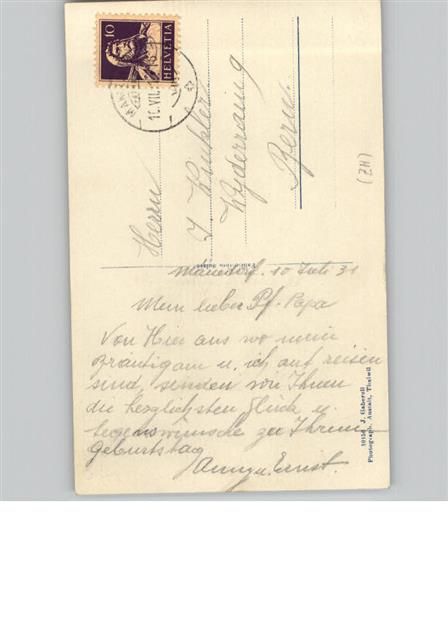 10
HELVETIA
10.VII.
Herrn
J. Künkler
Wyderrain 9
Bern
(ZH)
Männedorf. 10 Juli 31
Mein lieber Pf-Papa
Von Hier aus wo mein
Bräutigam u. ich auf reisen
sind, senden wir Ihnen
die herzlichsten Glück u.
Segenswünsche zu Ihrem
Geburtstag
Anny u. Ernst.
10156 J. Gaberell
Photograph. Anstalt, Thalwil